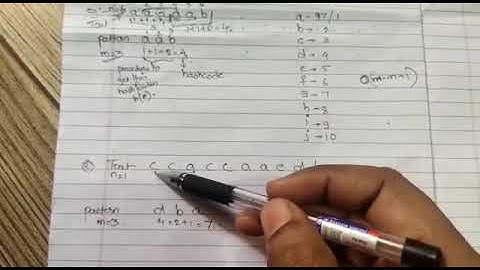 pattern a a b
m=3 1+1+2=4
hashcode
procedure to
get the
hash function
h(P).
a - 97/1
b - 2
c - 3
d - 4
e - 5
f - 6
g - 7
h - 8
i - 9
j - 10
O(m-n+1)
② Text c c a c c a a e d
pattern d b a
m=3 4+2+1=7